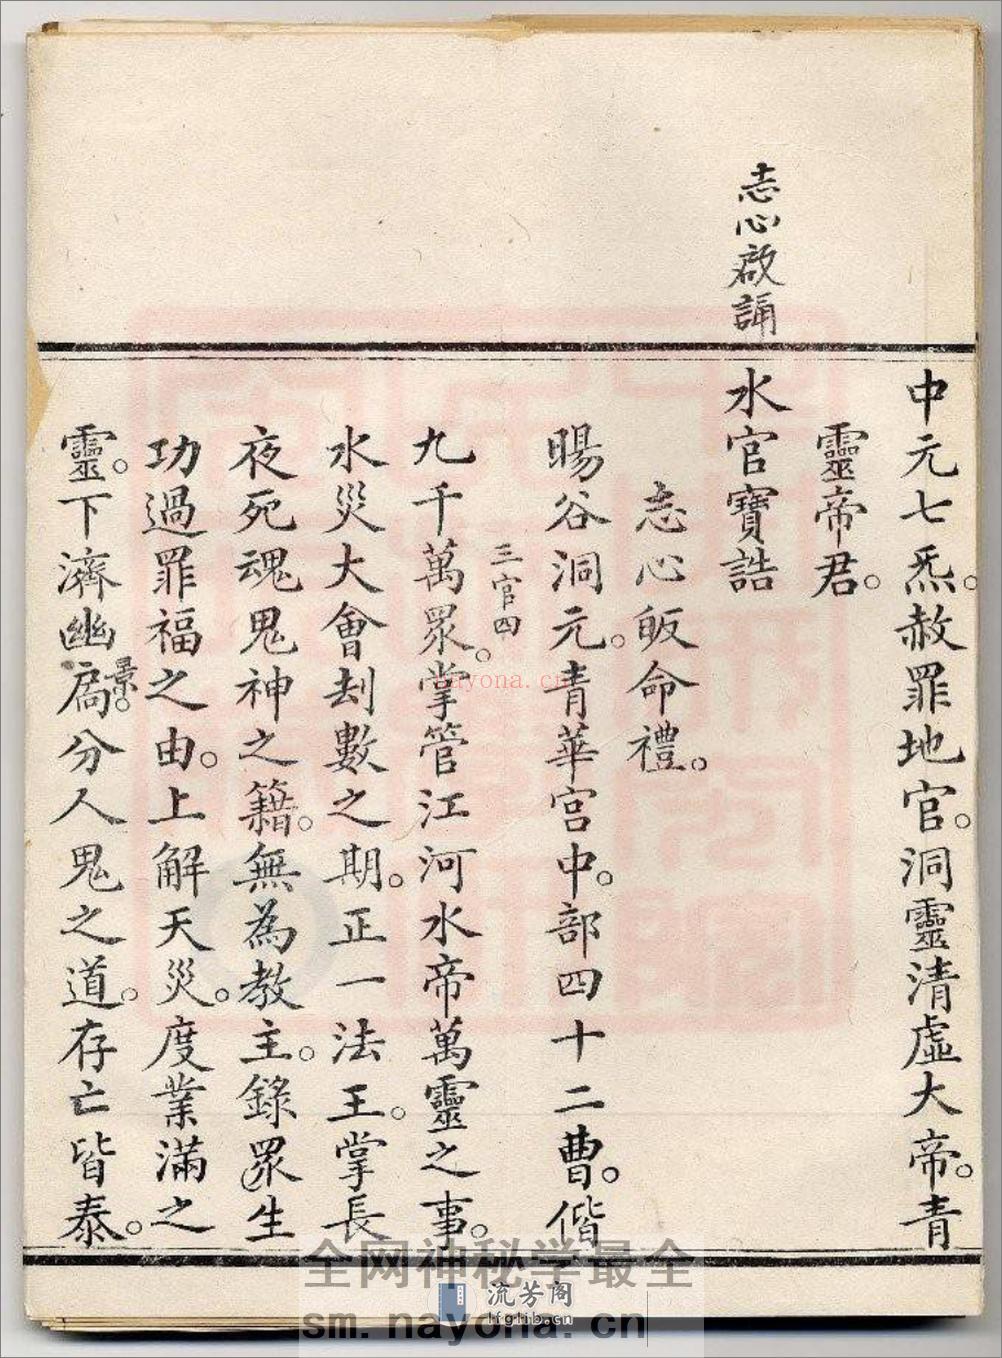 中元七炁。赦罪地官。洞靈清虛大帝。青
靈帝君。
志心啟誦
水官寶誥
志心皈命禮。
暘谷洞元。青華宮中。部四十二曹。偕
三官四
九千萬眾。掌管江河水帝萬靈之事。
水災大會刦數之期。正一法王。掌長
夜死魂鬼神之籍。無為教主。錄眾生
功過罪福之由。上解天災。度業滿之
靈。下濟幽扃。分人鬼之道。存亡皆泰。
景。
nayona.cn
全网神秘学最全
流芳阁
lfglib.cn
sm.nayona.cn